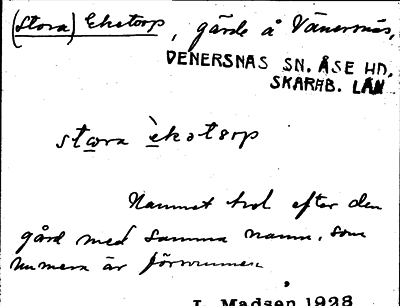 (Stora) Ekstorp, gärde å Vänersnäs,
VENERSNÄS SN. ÅSE HD.
SKARAB. LÄN
stora èkstorp
Namnet trol efter den
gård med samma namn, som
numera är försvunnen
L. Madsen 1928